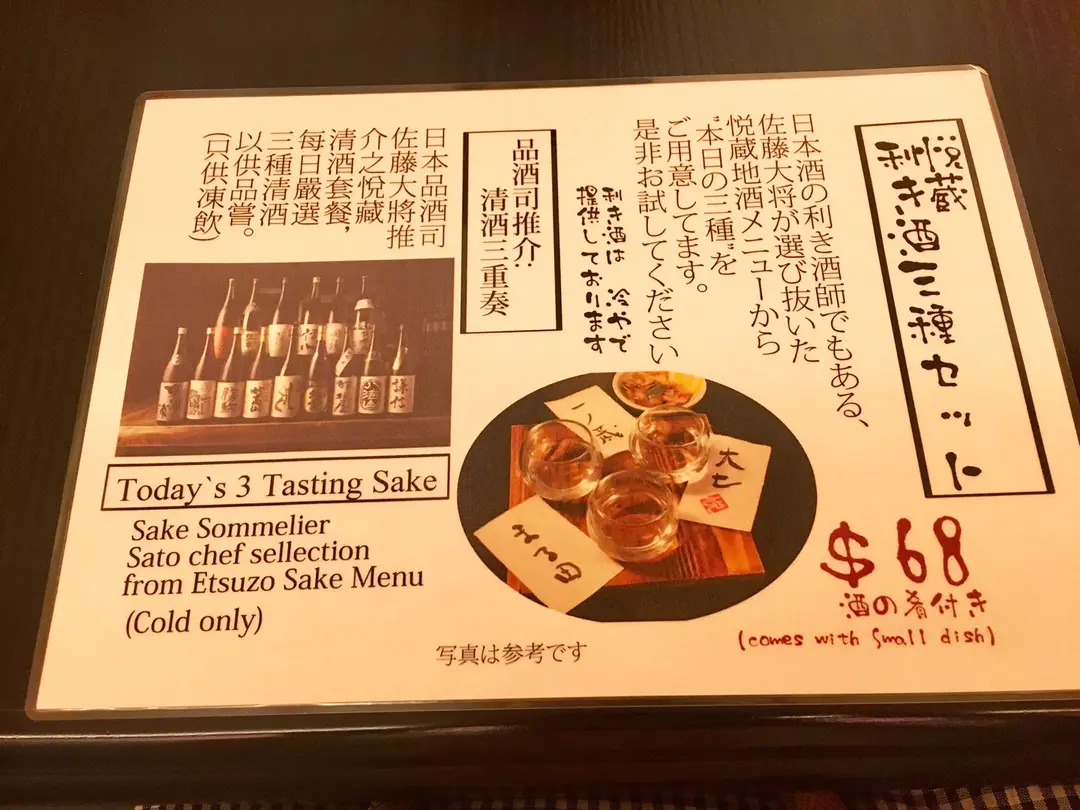 悦蔵
利き酒三種セット
日本酒の利き酒師でもある、
佐藤大将が選び抜いた
悦蔵地酒メニューから
"本日の三種"を
ご用意してます。
是非お試してください
利き酒は 冷やで
提供しております
品酒司推介:
清酒三重奏
日本品酒司
佐藤大將推
介之悦藏
清酒套餐,
每日嚴選
三種清酒
以供品嘗。
(只供凍飲)
Today`s 3 Tasting Sake
Sake Sommelier
Sato chef sellection
from Etsuzo Sake Menu
(Cold only)
大七
$68
酒の肴付き
(comes with small dish)
写真は参考です